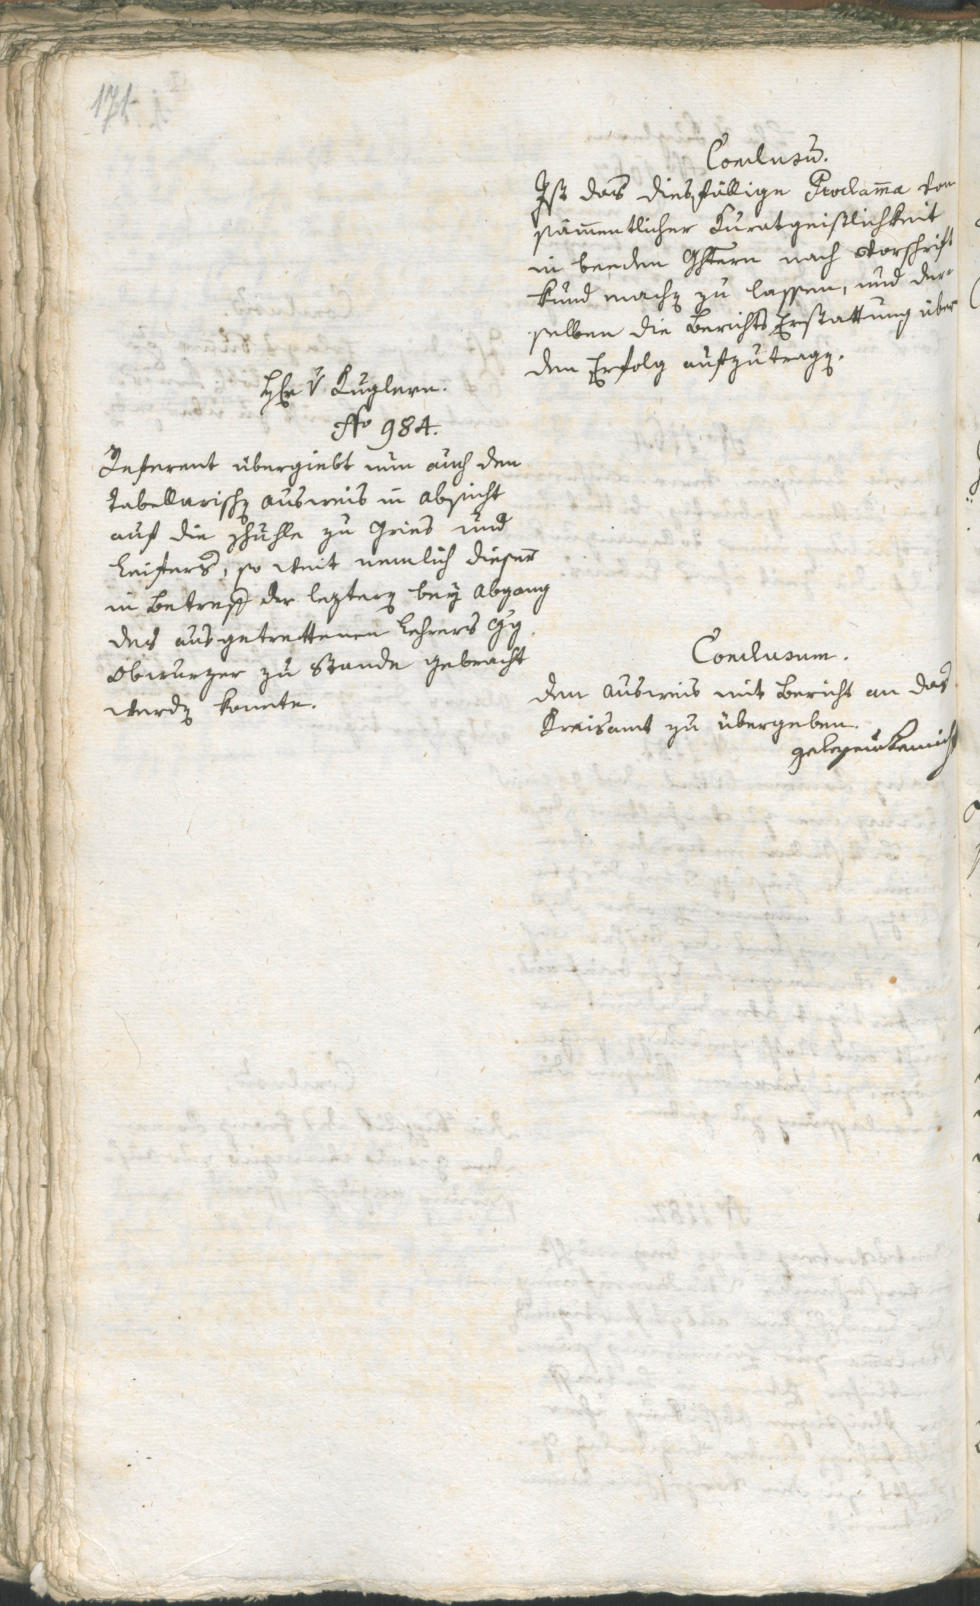 171.
Conclusū.
Ist das diesfällige Proclama̅ von
sam̅entlicher Curatgeistlichkeit
in beeden Ghtern nach Vorschrift
kund mach̅ zu lassen, und der¬
selben die Berichts Erstattung über
den Erfolg aufzutrag̅.
H̅r v Kuglern.
No 984.
Referent übergiebt nun auch den
tabellarisch̅ Ausweis in Absicht
auf die Schulle zu Gries und
Leifers, so weit nemlich dieser
in Betreff der leztern bey Abgang
des ausgetrettenen Lehrers Gg.
Obwurzer zu Stande gebracht
werd̅ konnte.
Conclusum.
den Ausweis mit Bericht an das
Kreisamt zu übergeben.